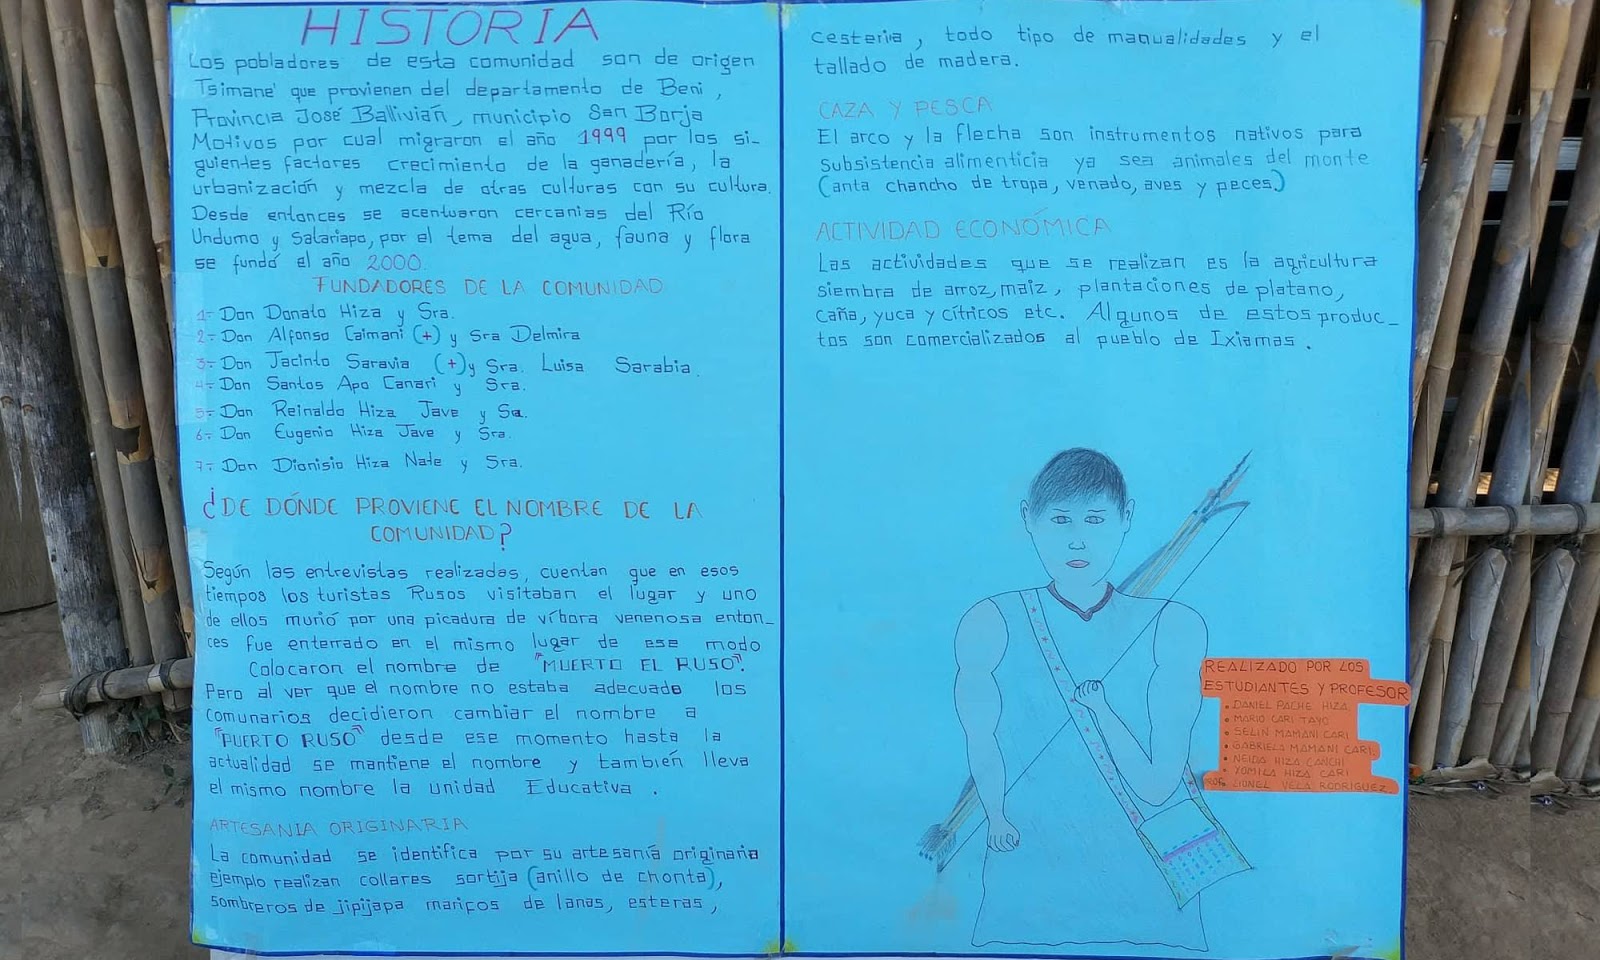 HISTORIA
Los pobladores de esta comunidad son de origen
Tsimane' que provienen del departamento de Beni,
Provincia José Ballivián, municipio San Borja
Motivos por cual migraron el año 1999 por los si-
guientes factores crecimiento de la ganadería, la
urbanización y mezcla de otras culturas con su cultura.
Desde entonces se acentuaron cercanias del Río
Undumo y Satariapo, por el tema del agua, fauna y flora
se fundó el año 2000.
FUNDADORES DE LA COMUNIDAD
1.- Don Donato Hiza y Sra.
2.- Don Alfonso Caimani (+) y Sra Delmira
3.- Don Jacinto Saravia (+) y Sra. Luisa Sarabia.
4.- Don Santos Apo Canari y Sra.
5.- Don Reinaldo Hiza Jave y Sa.
6.- Don Eugenio Hiza Jave y Sra.
7.- Don Dionisio Hiza Nate y Sra.
¿DE DÓNDE PROVIENE EL NOMBRE DE LA
COMUNIDAD?
Según las entrevistas realizadas, cuentan que en esos
tiempos los turistas Rusos visitaban el lugar y uno
de ellos murió por una picadura de víbora venenosa enton-
ces fue enterrado en el mismo lugar de ese modo
Colocaron el nombre de "MUERTO EL RUSO".
Pero al ver que el nombre no estaba adecuado los
comunarios decidieron cambiar el nombre a
"PUERTO RUSO" desde ese momento hasta la
actualidad se mantiene el nombre y también lleva
el mismo nombre la unidad Educativa.
ARTESANIA ORIGINARIA
La comunidad se identifica por su artesanía originaria
ejemplo realizan collares sortija (anillo de chonta),
sombreros de jipijapa maricos de lanas, esteras,
cesteria, todo tipo de manualidades y el
tallado de madera.
CAZA Y PESCA
El arco y la flecha son instrumentos nativos para
subsistencia alimenticia ya sea animales del monte
(anta chancho de tropa, venado, aves y peces.)
ACTIVIDAD ECONÓMICA
Las actividades que se realizan es la agricultura
siembra de arroz, maiz, plantaciones de platano,
caña, yuca y cítricos etc. Algunos de estos produc-
tos son comercializados al pueblo de Ixiamas.
REALIZADO POR LOS
ESTUDIANTES Y PROFESOR
• DANIEL PACHE HIZA
• MARIO CARI TAYO
• SELIN MAMANI CARI
• GABRIELA MAMANI CARI.
• NEIDA HIZA CANCHI
• YOMILA HIZA CARI
PROF. LIONEL VELA RODRIGUEZ.